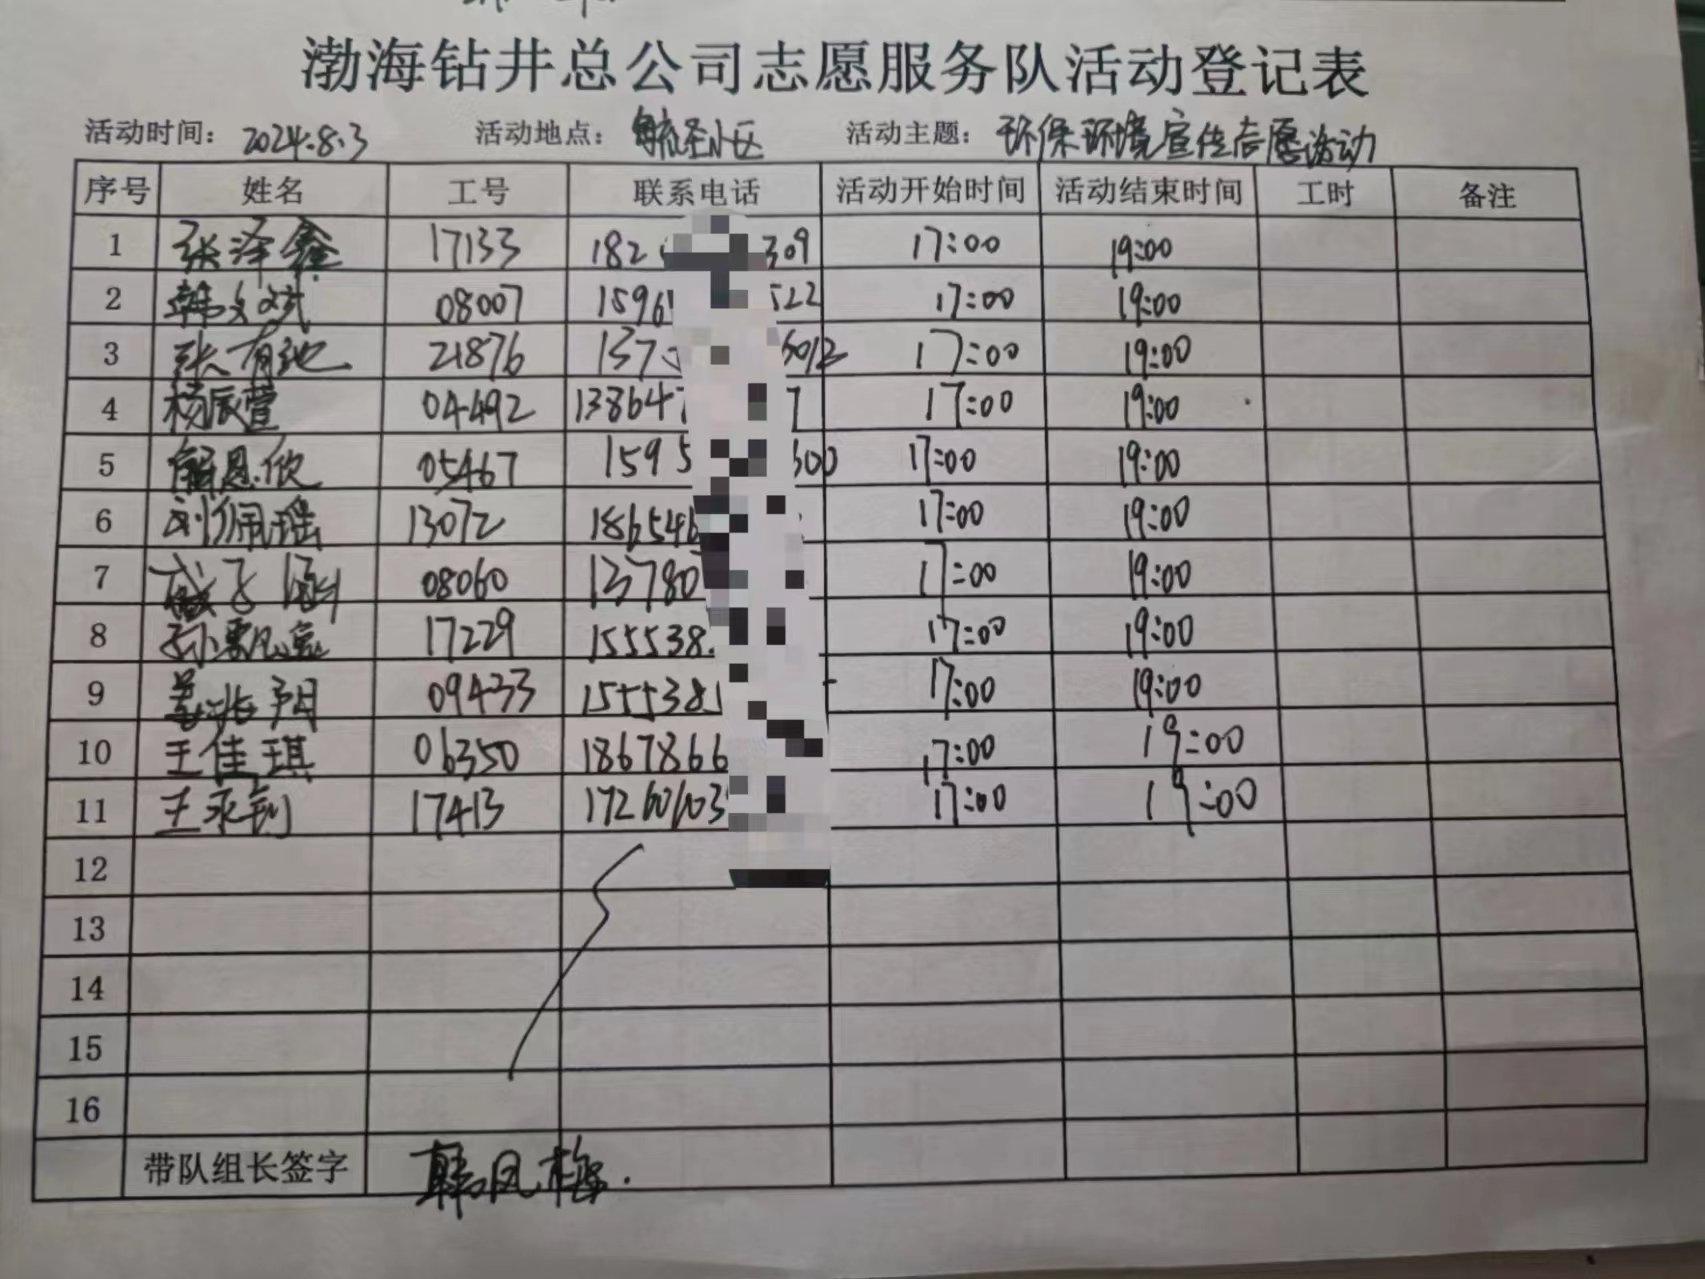 渤海钻井总公司志愿服务队活动登记表
活动时间：2024.8.3 活动地点：小区 活动主题：环保环境宣传志愿活动
序号 姓名 工号 联系电话 活动开始时间 活动结束时间 工时 备注
1 张泽鑫 17133 182 309 17:00 19:00
2 韩文斌 08007 1596 522 17:00 19:00
3 张有弛 21876 137 6012 17:00 19:00
4 杨宸萱 04492 138647 7 17:00 19:00
5 解恩欣 05467 1595 300 17:00 19:00
6 刘佩瑶 13072 186546 17:00 19:00
7 臧子涵 08060 13780 17:00 19:00
8 孙 17229 155538 17:00 19:00
9 姜兆阳 09433 1555381 17:00 19:00
10 王佳琪 06350 1867866 17:00 19:00
11 王永钊 17413 17:00 19:00
12
13
14
15
16
带队组长签字 韩凤梅.